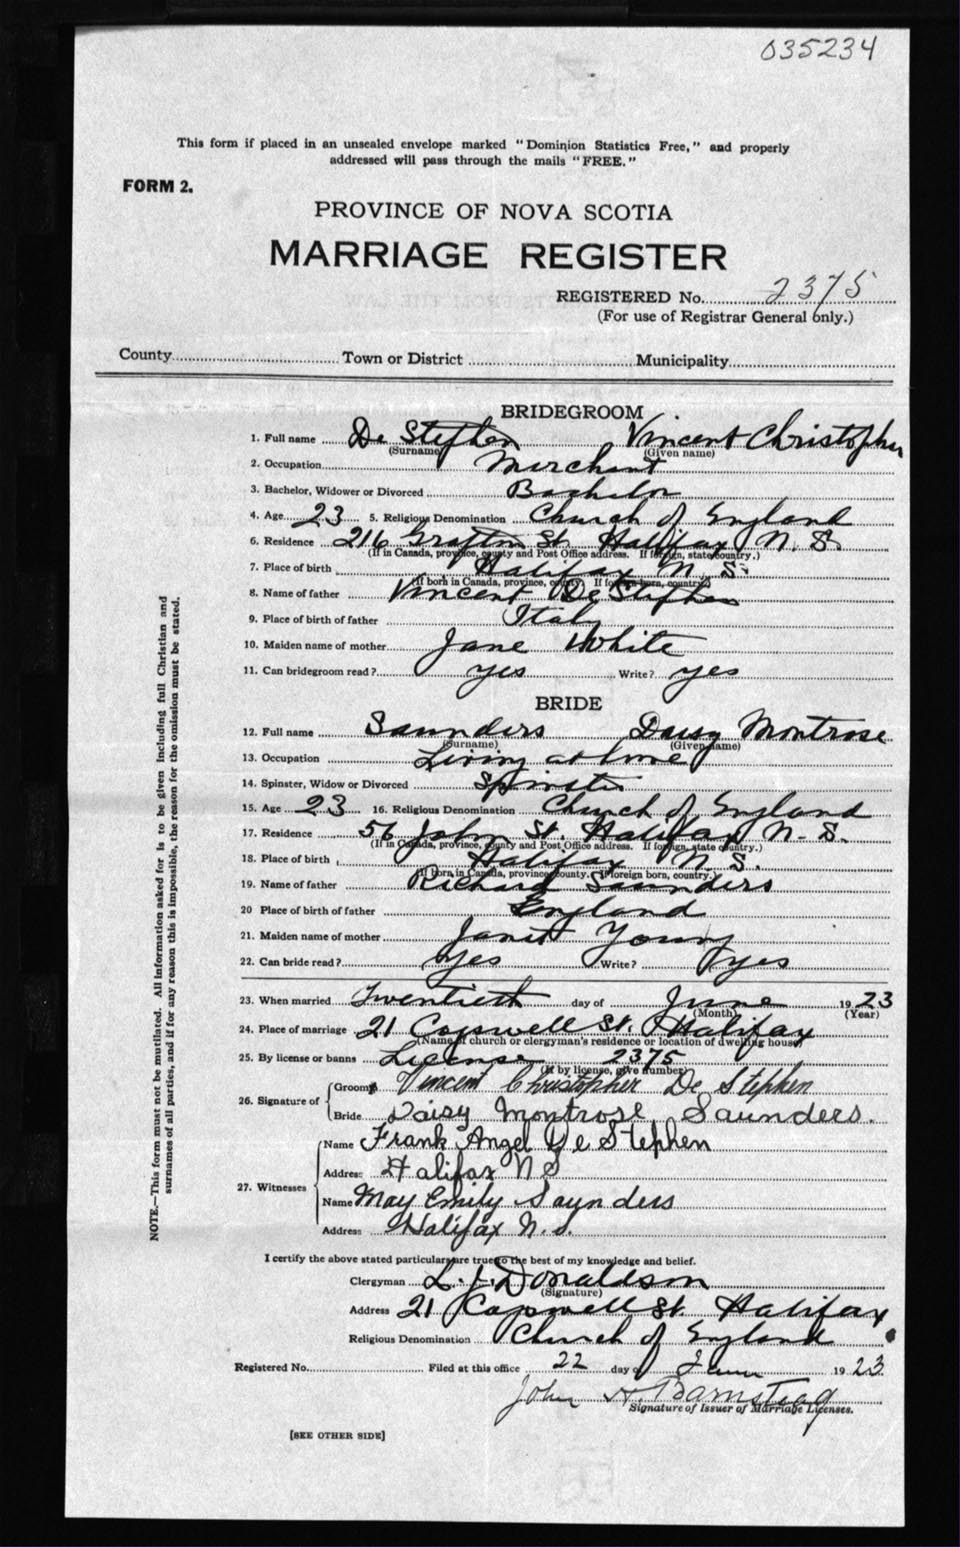 035234
This form if placed in an unsealed envelope marked "Dominion Statistics Free," and properly
addressed will pass through the mails "FREE."
FORM 2.
PROVINCE OF NOVA SCOTIA
MARRIAGE REGISTER
REGISTERED No. 2375
(For use of Registrar General only.)
County Town or District Municipality
BRIDEGROOM
1. Full name De Stephen Vincent Christopher
(Surname) (Given name)
2. Occupation Merchant
3. Bachelor, Widower or Divorced Bachelor
4. Age 23 5. Religious Denomination Church of England
6. Residence 216 Grafton St. Halifax N.S.
(If in Canada, province, county and Post Office address. If foreign, state country.)
7. Place of birth Halifax N.S.
(If born in Canada, province, county. If foreign born, country.)
8. Name of father Vincent De Stephen
9. Place of birth of father Italy
10. Maiden name of mother Jane White
11. Can bridegroom read? yes Write? yes
BRIDE
12. Full name Saunders Daisy Montrose
(Surname) (Given name)
13. Occupation Living at home
14. Spinster, Widow or Divorced Spinster
15. Age 23 16. Religious Denomination Church of England
17. Residence 56 John St. Halifax N.S.
(If in Canada, province, county and Post Office address. If foreign, state country.)
18. Place of birth Halifax N.S.
(If born in Canada, province county. If foreign born, country.)
19. Name of father Richard Saunders
20 Place of birth of father England
21. Maiden name of mother Janet Young
22. Can bride read? Yes Write? yes
23. When married Twentieth day of June 1923
(Month) (Year)
24. Place of marriage 21 Cogswell St. Halifax
(Name of church or clergyman's residence or location of dwelling house)
25. By license or banns License 2375
(If by license, give number)
26. Signature of
Groom Vincent Christopher De Stephen
Bride Daisy Montrose Saunders.
27. Witnesses
Name Frank Angel De Stephen
Address Halifax N S
Name May Emily Saunders
Address Halifax N.S.
I certify the above stated particulars are true to the best of my knowledge and belief.
Clergyman L. J. Donaldson
(Signature)
Address 21 Cogswell St. Halifax
Religious Denomination Church of England
Registered No. Filed at this office 22 day of June 1923
John H. Barnstead
Signature of Issuer of Marriage Licenses.
[SEE OTHER SIDE]
NOTE.—This form must not be mutilated. All information asked for is to be given including full Christian and
surnames of all parties, and if for any reason this is impossible, the reason for the omission must be stated.